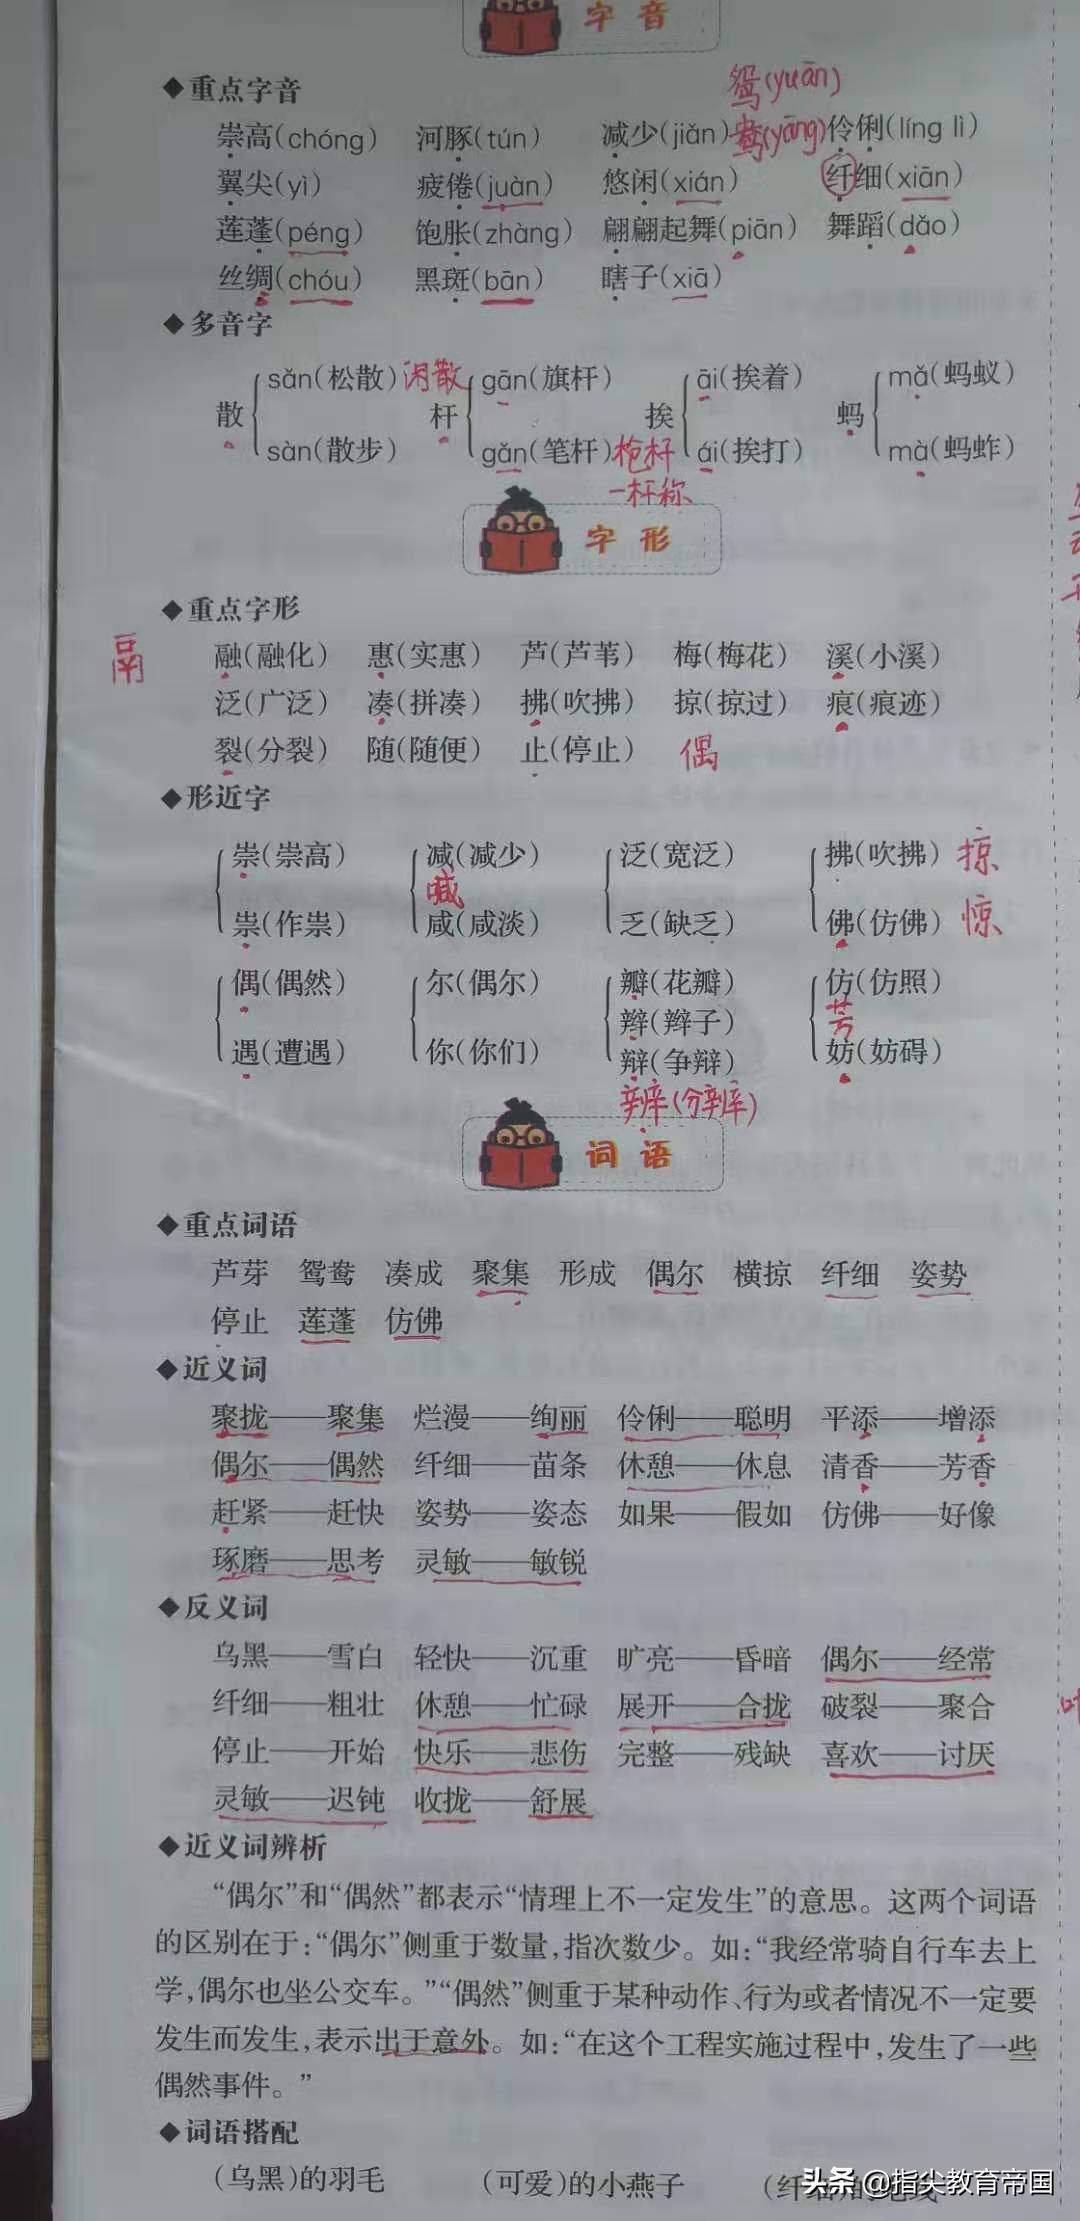 字音
◆重点字音
鸳(yuān)
崇高(chóng) 河豚(tún) 减少(jiǎn) 鸯(yāng) 伶俐(líng lì)
翼尖(yì) 疲倦(juàn) 悠闲(xián) 纤细(xiān)
莲蓬(péng) 饱胀(zhàng) 翩翩起舞(piān) 舞蹈(dǎo)
丝绸(chóu) 黑斑(bān) 瞎子(xiā)
◆多音字
sǎn(松散) 闲散 gān(旗杆) āi(挨着) mǎ(蚂蚁)
散 杆 挨 蚂
sàn(散步) gǎn(笔杆) 枪杆 ái(挨打) mà(蚂蚱)
一杆称
字形
◆重点字形
鬲 融(融化) 惠(实惠) 芦(芦苇) 梅(梅花) 溪(小溪)
泛(广泛) 凑(拼凑) 拂(吹拂) 掠(掠过) 痕(痕迹)
裂(分裂) 随(随便) 止(停止) 偶
◆形近字
崇(崇高) 减(减少) 泛(宽泛) 拂(吹拂) 掠
喊
祟(作祟) 咸(咸淡) 乏(缺乏) 佛(仿佛) 惊
偶(偶然) 尔(偶尔) 瓣(花瓣) 仿(仿照)
辫(辫子) 芳
遇(遭遇) 你(你们) 辩(争辩) 妨(妨碍)
辨(分辨)
词语
◆重点词语
芦芽 鸳鸯 凑成 聚集 形成 偶尔 横掠 纤细 姿势
停止 莲蓬 仿佛
◆近义词
聚拢——聚集 烂漫——绚丽 伶俐——聪明 平添——增添
偶尔——偶然 纤细——苗条 休憩——休息 清香——芳香
赶紧——赶快 姿势——姿态 如果——假如 仿佛——好像
琢磨——思考 灵敏——敏锐
◆反义词
乌黑——雪白 轻快——沉重 旷亮——昏暗 偶尔——经常
纤细——粗壮 休憩——忙碌 展开——合拢 破裂——聚合
停止——开始 快乐——悲伤 完整——残缺 喜欢——讨厌
灵敏——迟钝 收拢——舒展
◆近义词辨析
“偶尔”和“偶然”都表示“情理上不一定发生”的意思。这两个词语
的区别在于:“偶尔”侧重于数量,指次数少。如:“我经常骑自行车去上
学,偶尔也坐公交车。”“偶然”侧重于某种动作、行为或者情况不一定要
发生而发生,表示出于意外。如:“在这个工程实施过程中,发生了一些
偶然事件。”
◆词语搭配
(乌黑)的羽毛 (可爱)的小燕子 (纤细
头条 @指尖教育帝国